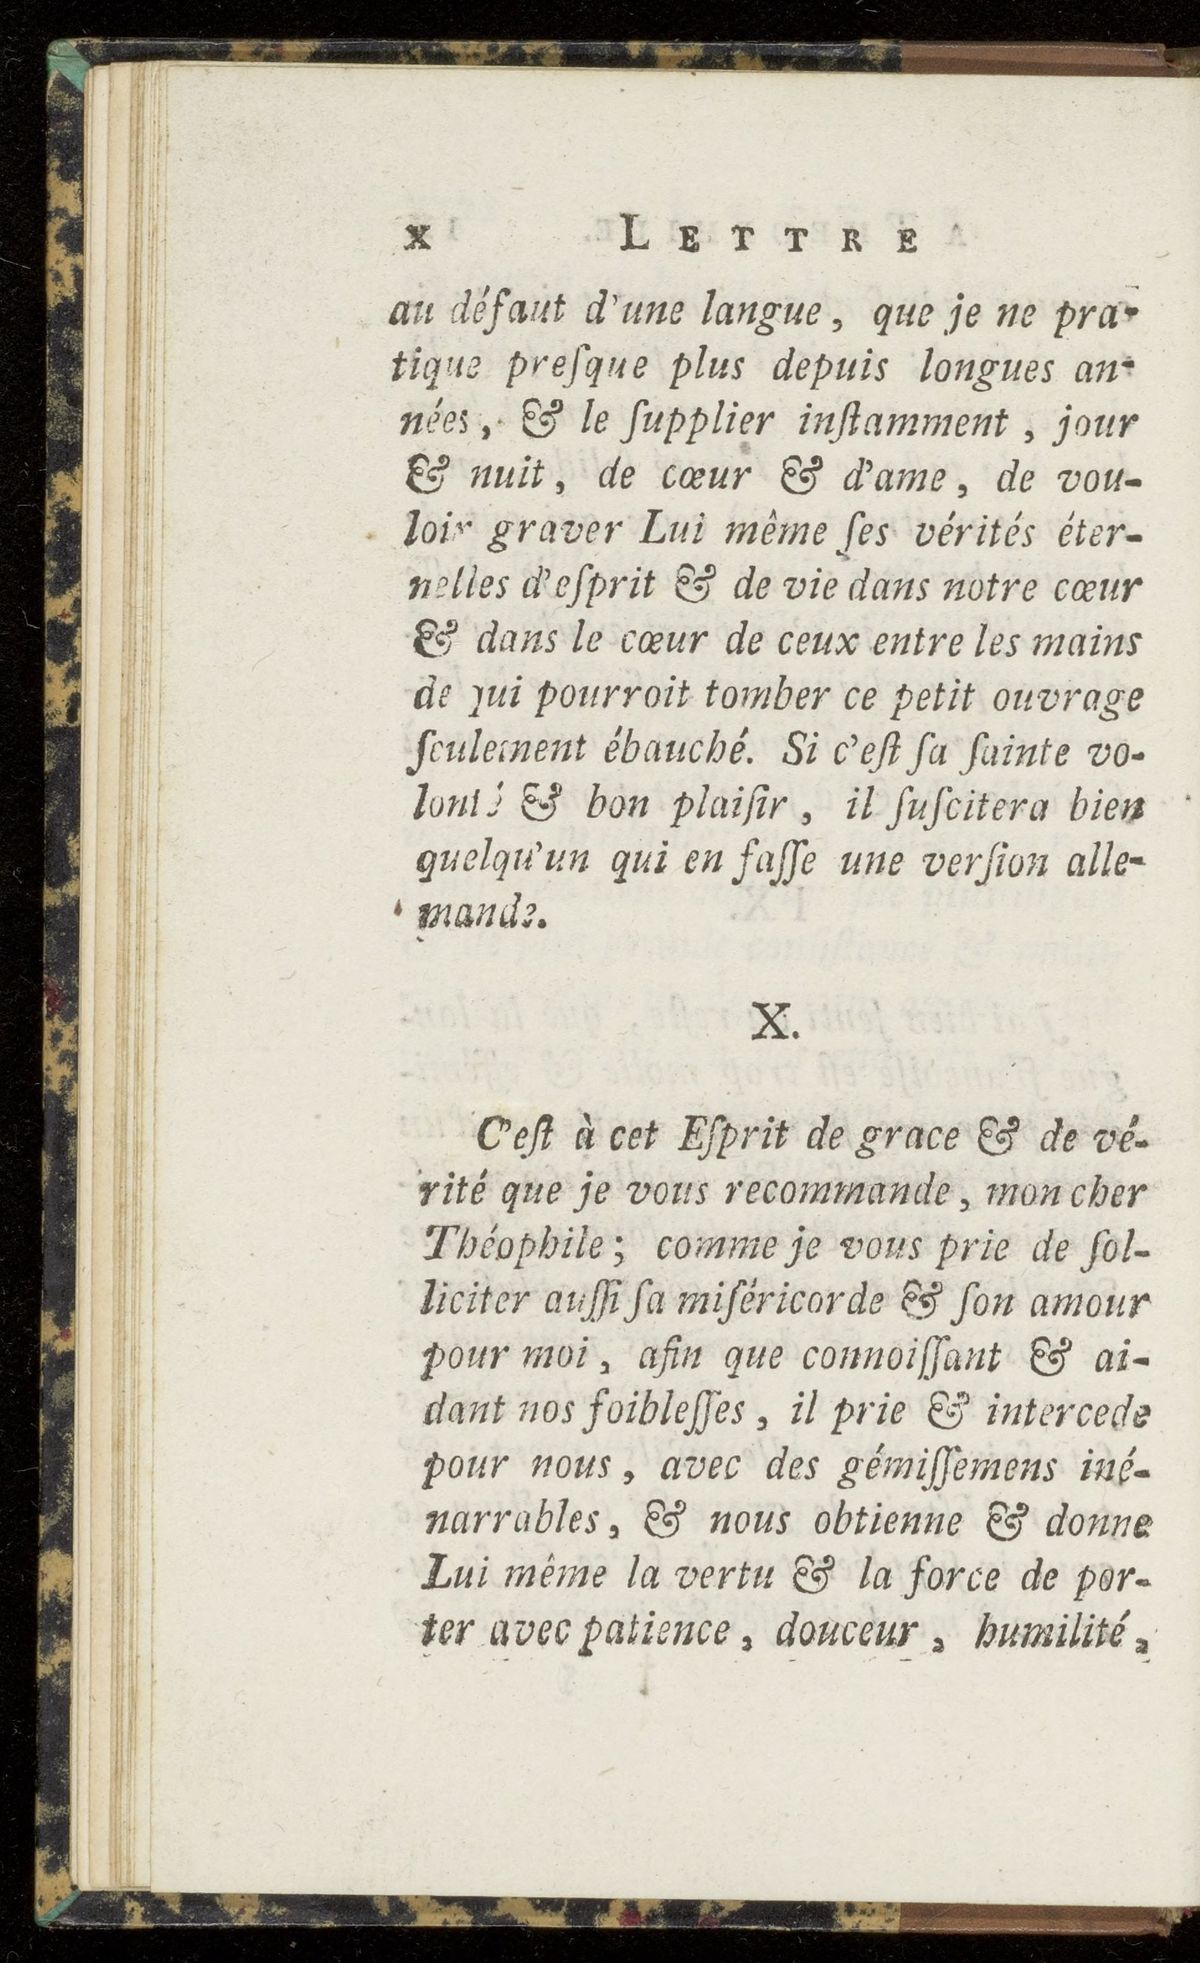 x LETTRE
au défaut d'une langue, que je ne pra-
tique preſque plus depuis longues an-
nées, & le ſupplier inſtamment, jour
& nuit, de cœur & d'ame, de vou-
loir graver Lui même ſes vérités éter-
nelles d'eſprit & de vie dans notre cœur
& dans le cœur de ceux entre les mains
de qui pourroit tomber ce petit ouvrage
ſeulement ébauché. Si c'eſt ſa ſainte vo-
lonté & bon plaiſir, il ſuſcitera bien
quelqu'un qui en faſſe une verſion alle-
mande.
X.
C'eſt à cet Eſprit de grace & de vé-
rité que je vous recommande, mon cher
Théophile; comme je vous prie de ſol-
liciter auſſi ſa miſéricorde & ſon amour
pour moi, afin que connoiſſant & ai-
dant nos foibleſſes, il prie & intercede
pour nous, avec des gémiſſemens iné-
narrables, & nous obtienne & donne
Lui même la vertu & la force de por-
ter avec patience, douceur, humilité,